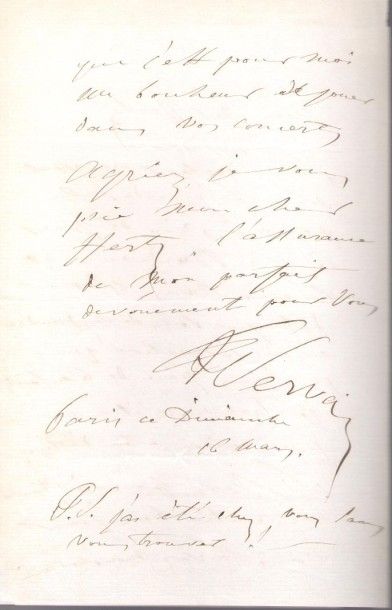 que c'est pour moi
un bonheur de jouer
dans vos concerts
Agréez, je vous
prie mon cher
Hertz, l'assurance
de mon parfait
dévouement pour vous
Paris ce Dimanche
16 mars.
P.S. j'ai été chez vous sans
vous trouver !